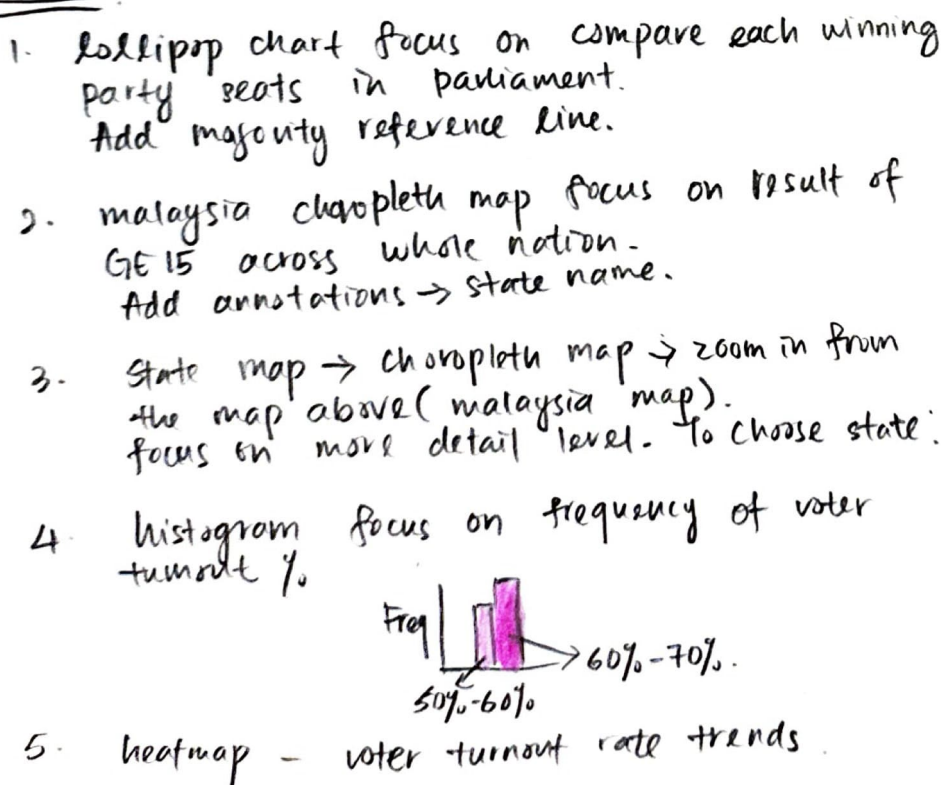 1. lollipop chart focus on compare each winning
party seats in parliament.
Add majority reference line.
2. malaysia choropleth map focus on result of
GE 15 across whole nation.
Add annotations → state name.
3. State map → choropleth map → zoom in from
the map above (malaysia map).
focus on more detail level. To choose state.
4. histogram focus on frequency of voter
turnout %
Freq
60%-70%.
50%-60%
5. heatmap - voter turnout rate trends.